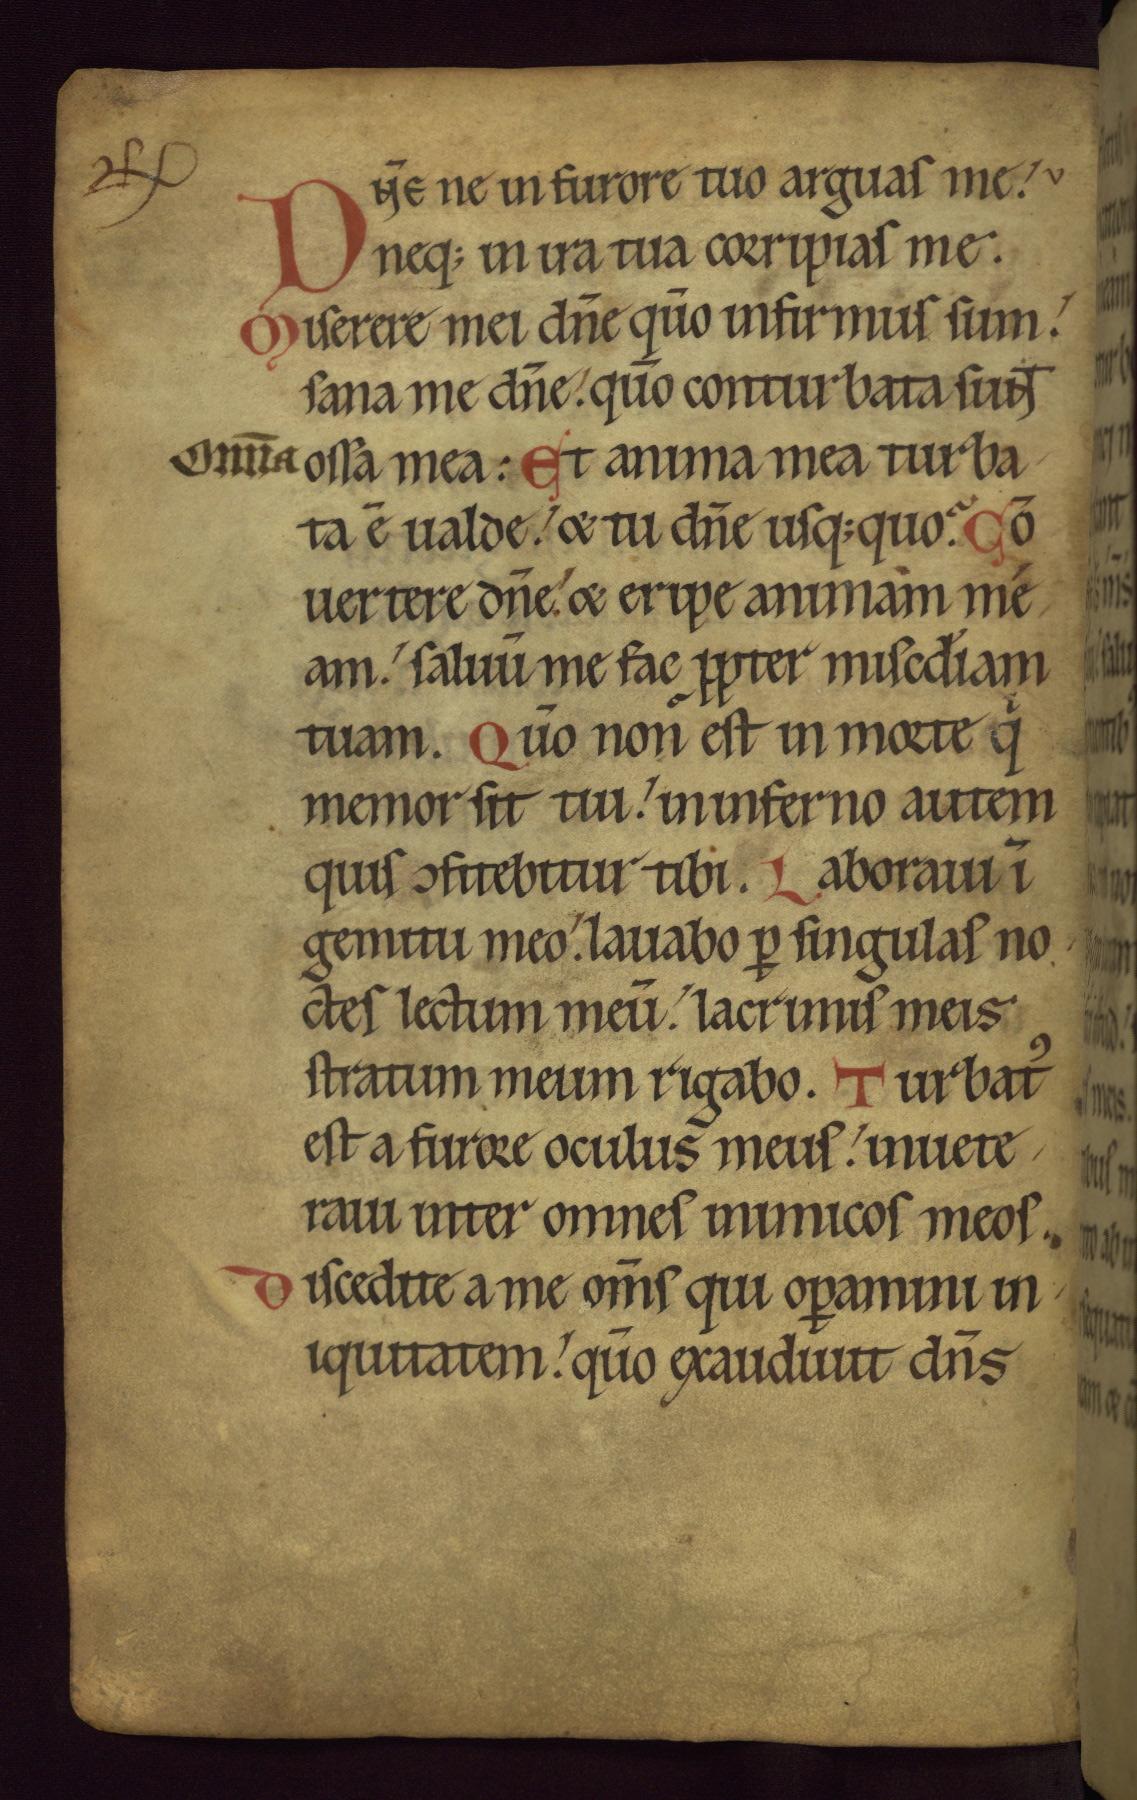 Dn̄e ne in furore tuo arguas me.
neq; in ira tua corripias me.
Miserere mei dn̄e qūo infirmus sum.
sana me dn̄e. qūo conturbata sunt
om̄ia ossa mea: Et anima mea turba
ta ē ualde. & tu dn̄e usq; quo. Cō
uertere dn̄e. & eripe animam me
am. saluū me fac ꝓpter misc̄diam
tuam. Qūo non est in morte qͥ
memor sit tui. in inferno autem
quis ↄfitebitur tibi. Laboraui ī
gemitu meo. lauabo ꝑ singulas no
ctes lectum meū. lacrimis meis
stratum meum rigabo. Turbatꝰ
est a furore oculus meus. inuete
raui inter omnes inimicos meos.
Discedite a me om̄s qui oꝑamini in
iquitatem. qūo exaudiuit dn̄s